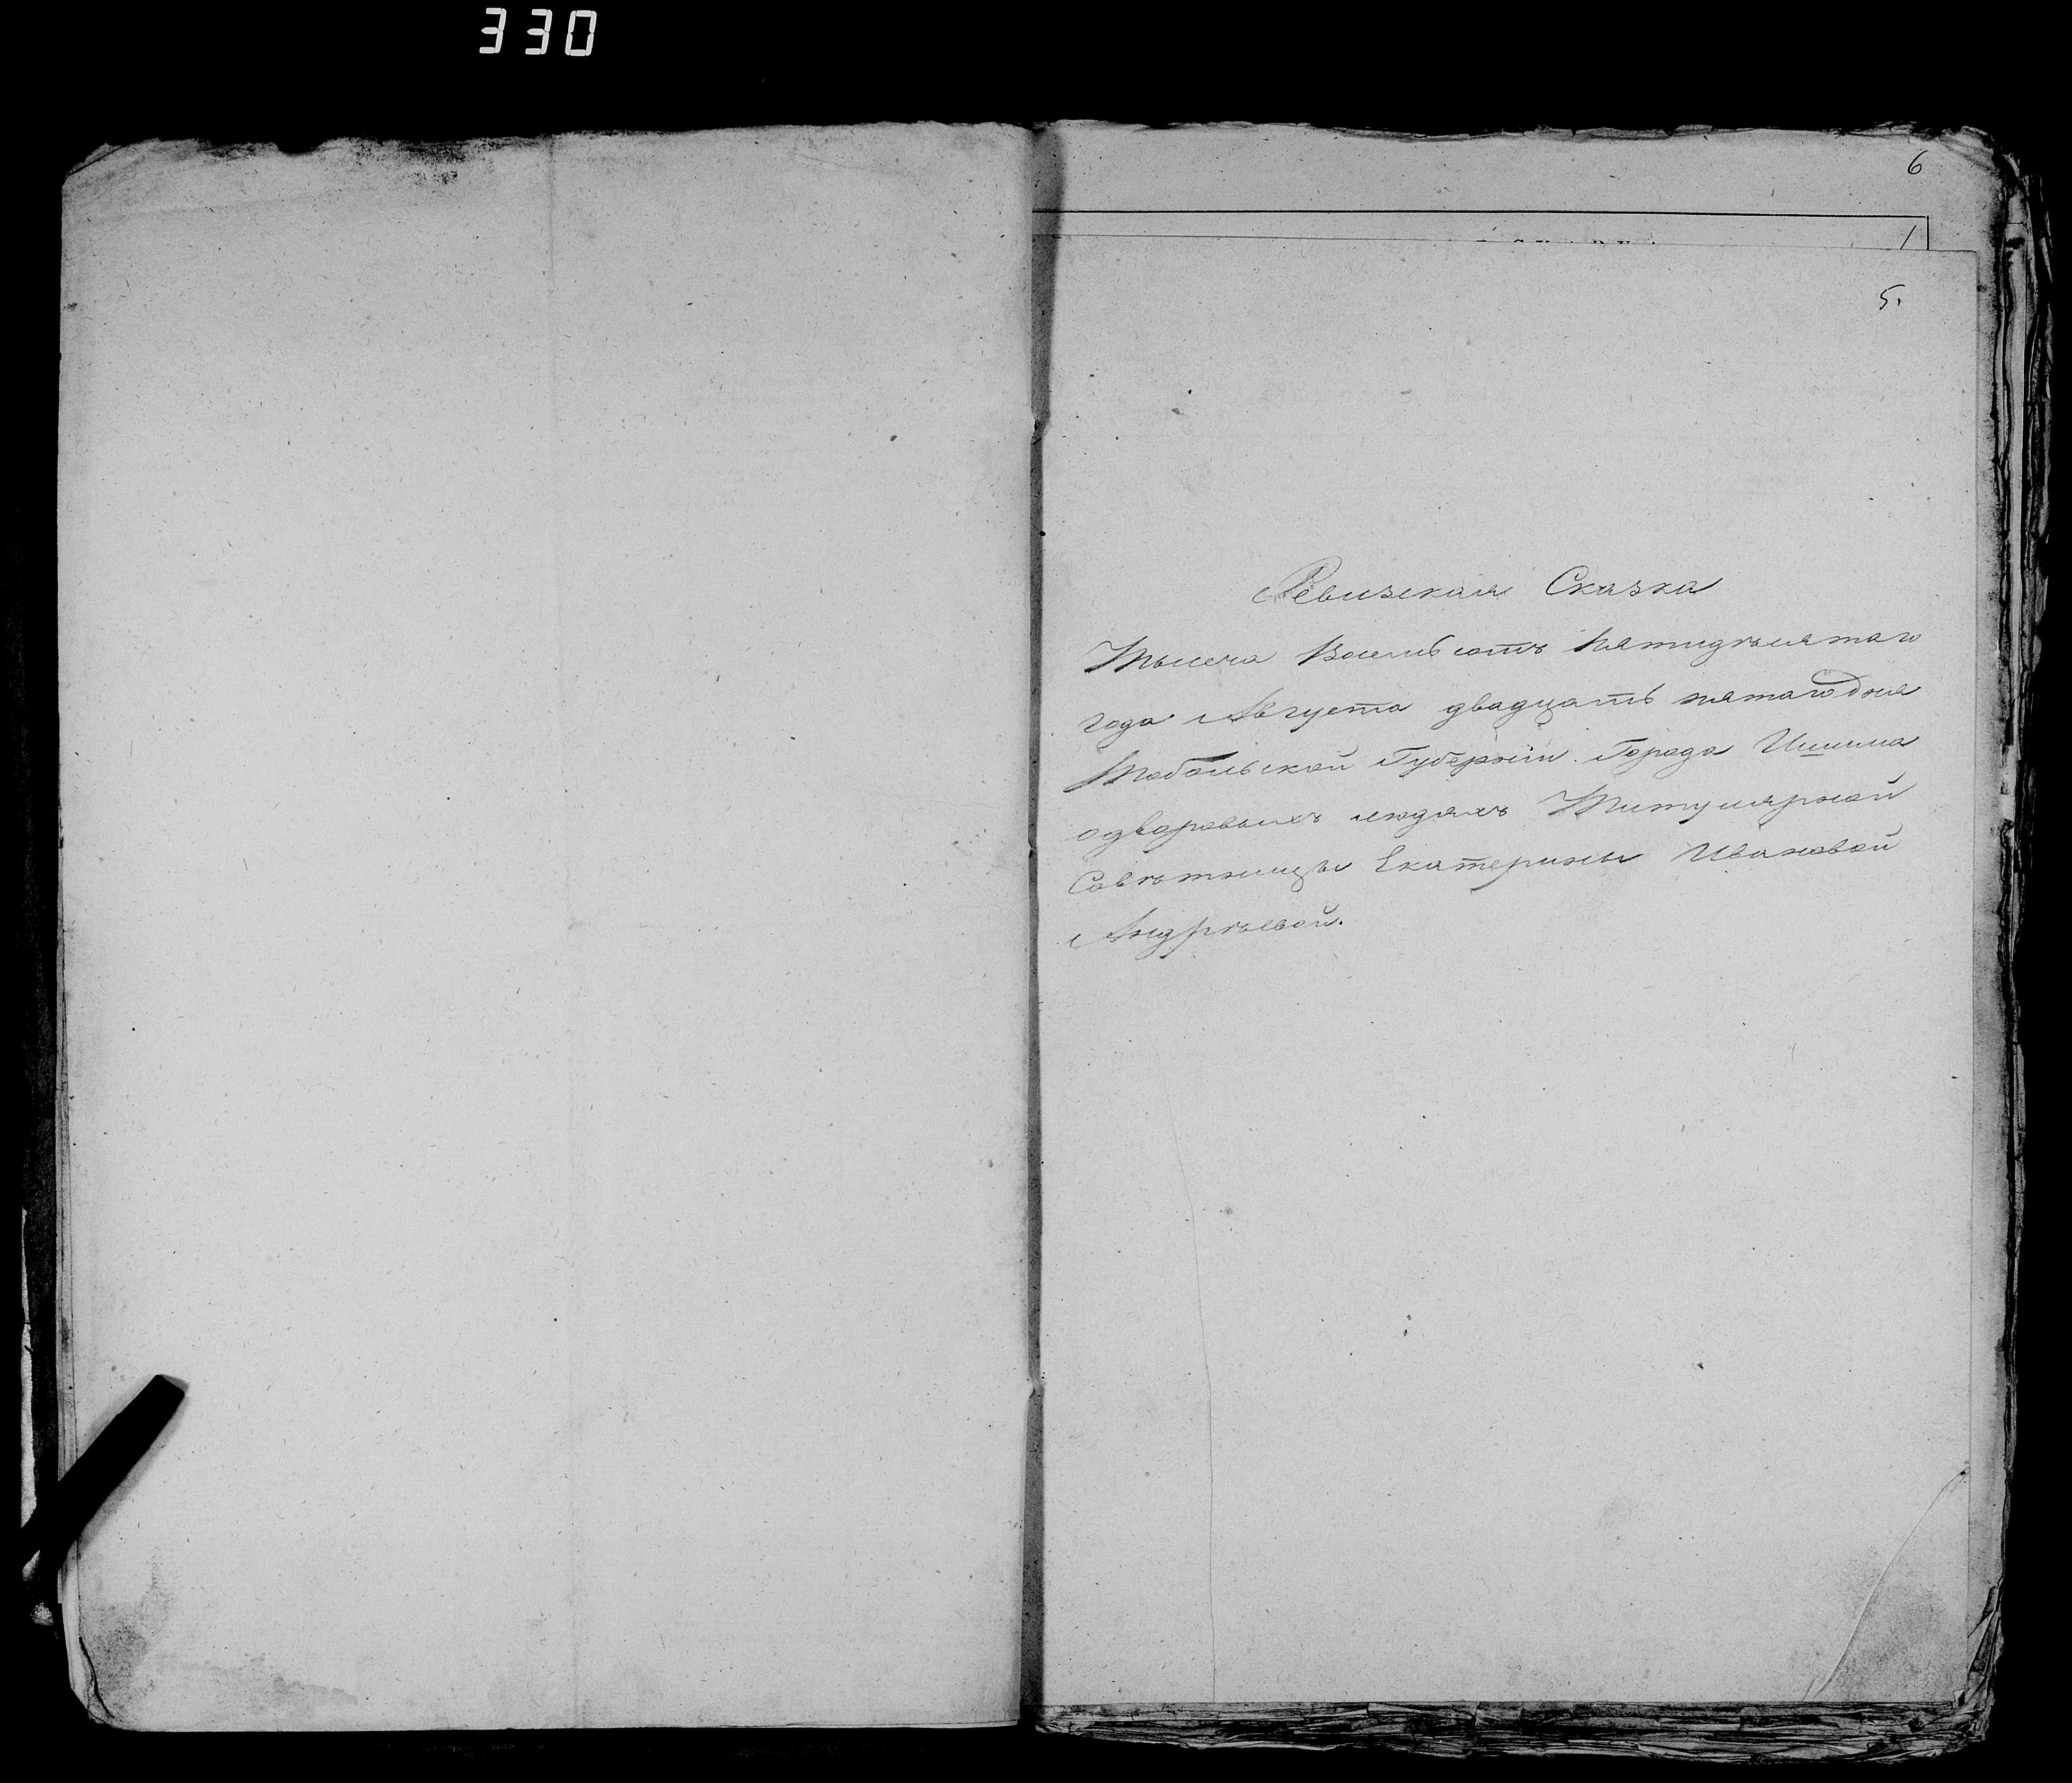 330
6
1
5.
Ревизская Сказка
Тысеча Восемьсотъ Пятидѣсятаго
года Августа двадцать пятаго дня
Тобольской Губернïи. Города Ишима
одворовыхъ людяхъ Титулярной
Совѣтницы Екатерины Ивановой
Андрѣевой.